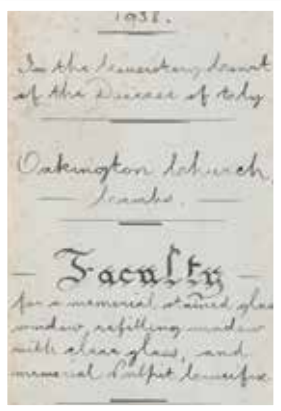 1938.
In the Consistory Court
of the Diocese of Ely
Oakington Church,
Cambs.
Faculty
for a memorial stained glass
window, refilling window
with clear glass, and
memorial Pulpit